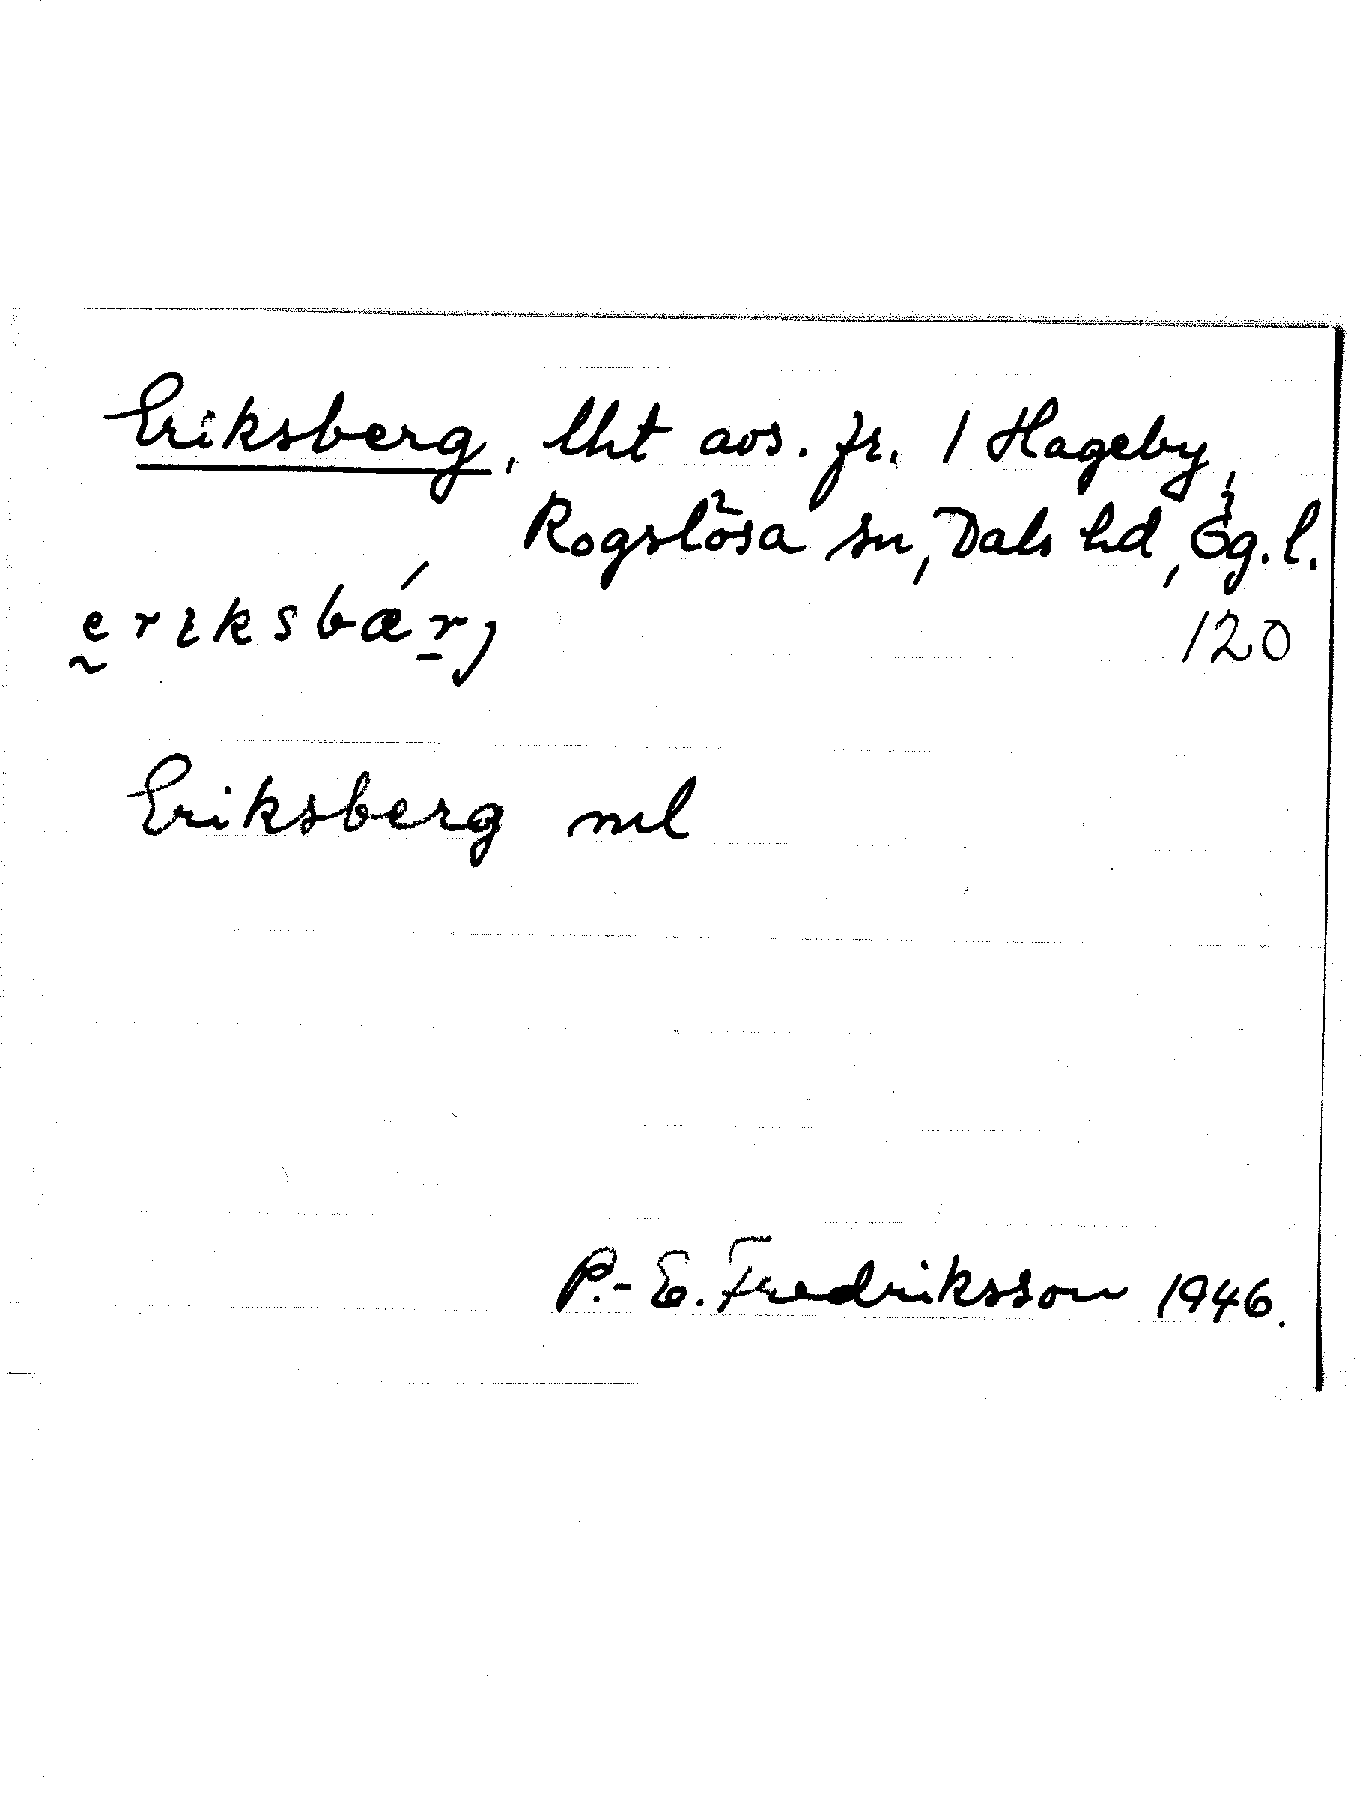 Eriksberg, lht avs. fr. 1 Hageby,
Rogslösa sn, Dals hd, Ög. l.
erıksbǽrj
120
Eriksberg ml
P.-E. Fredriksson 1946.